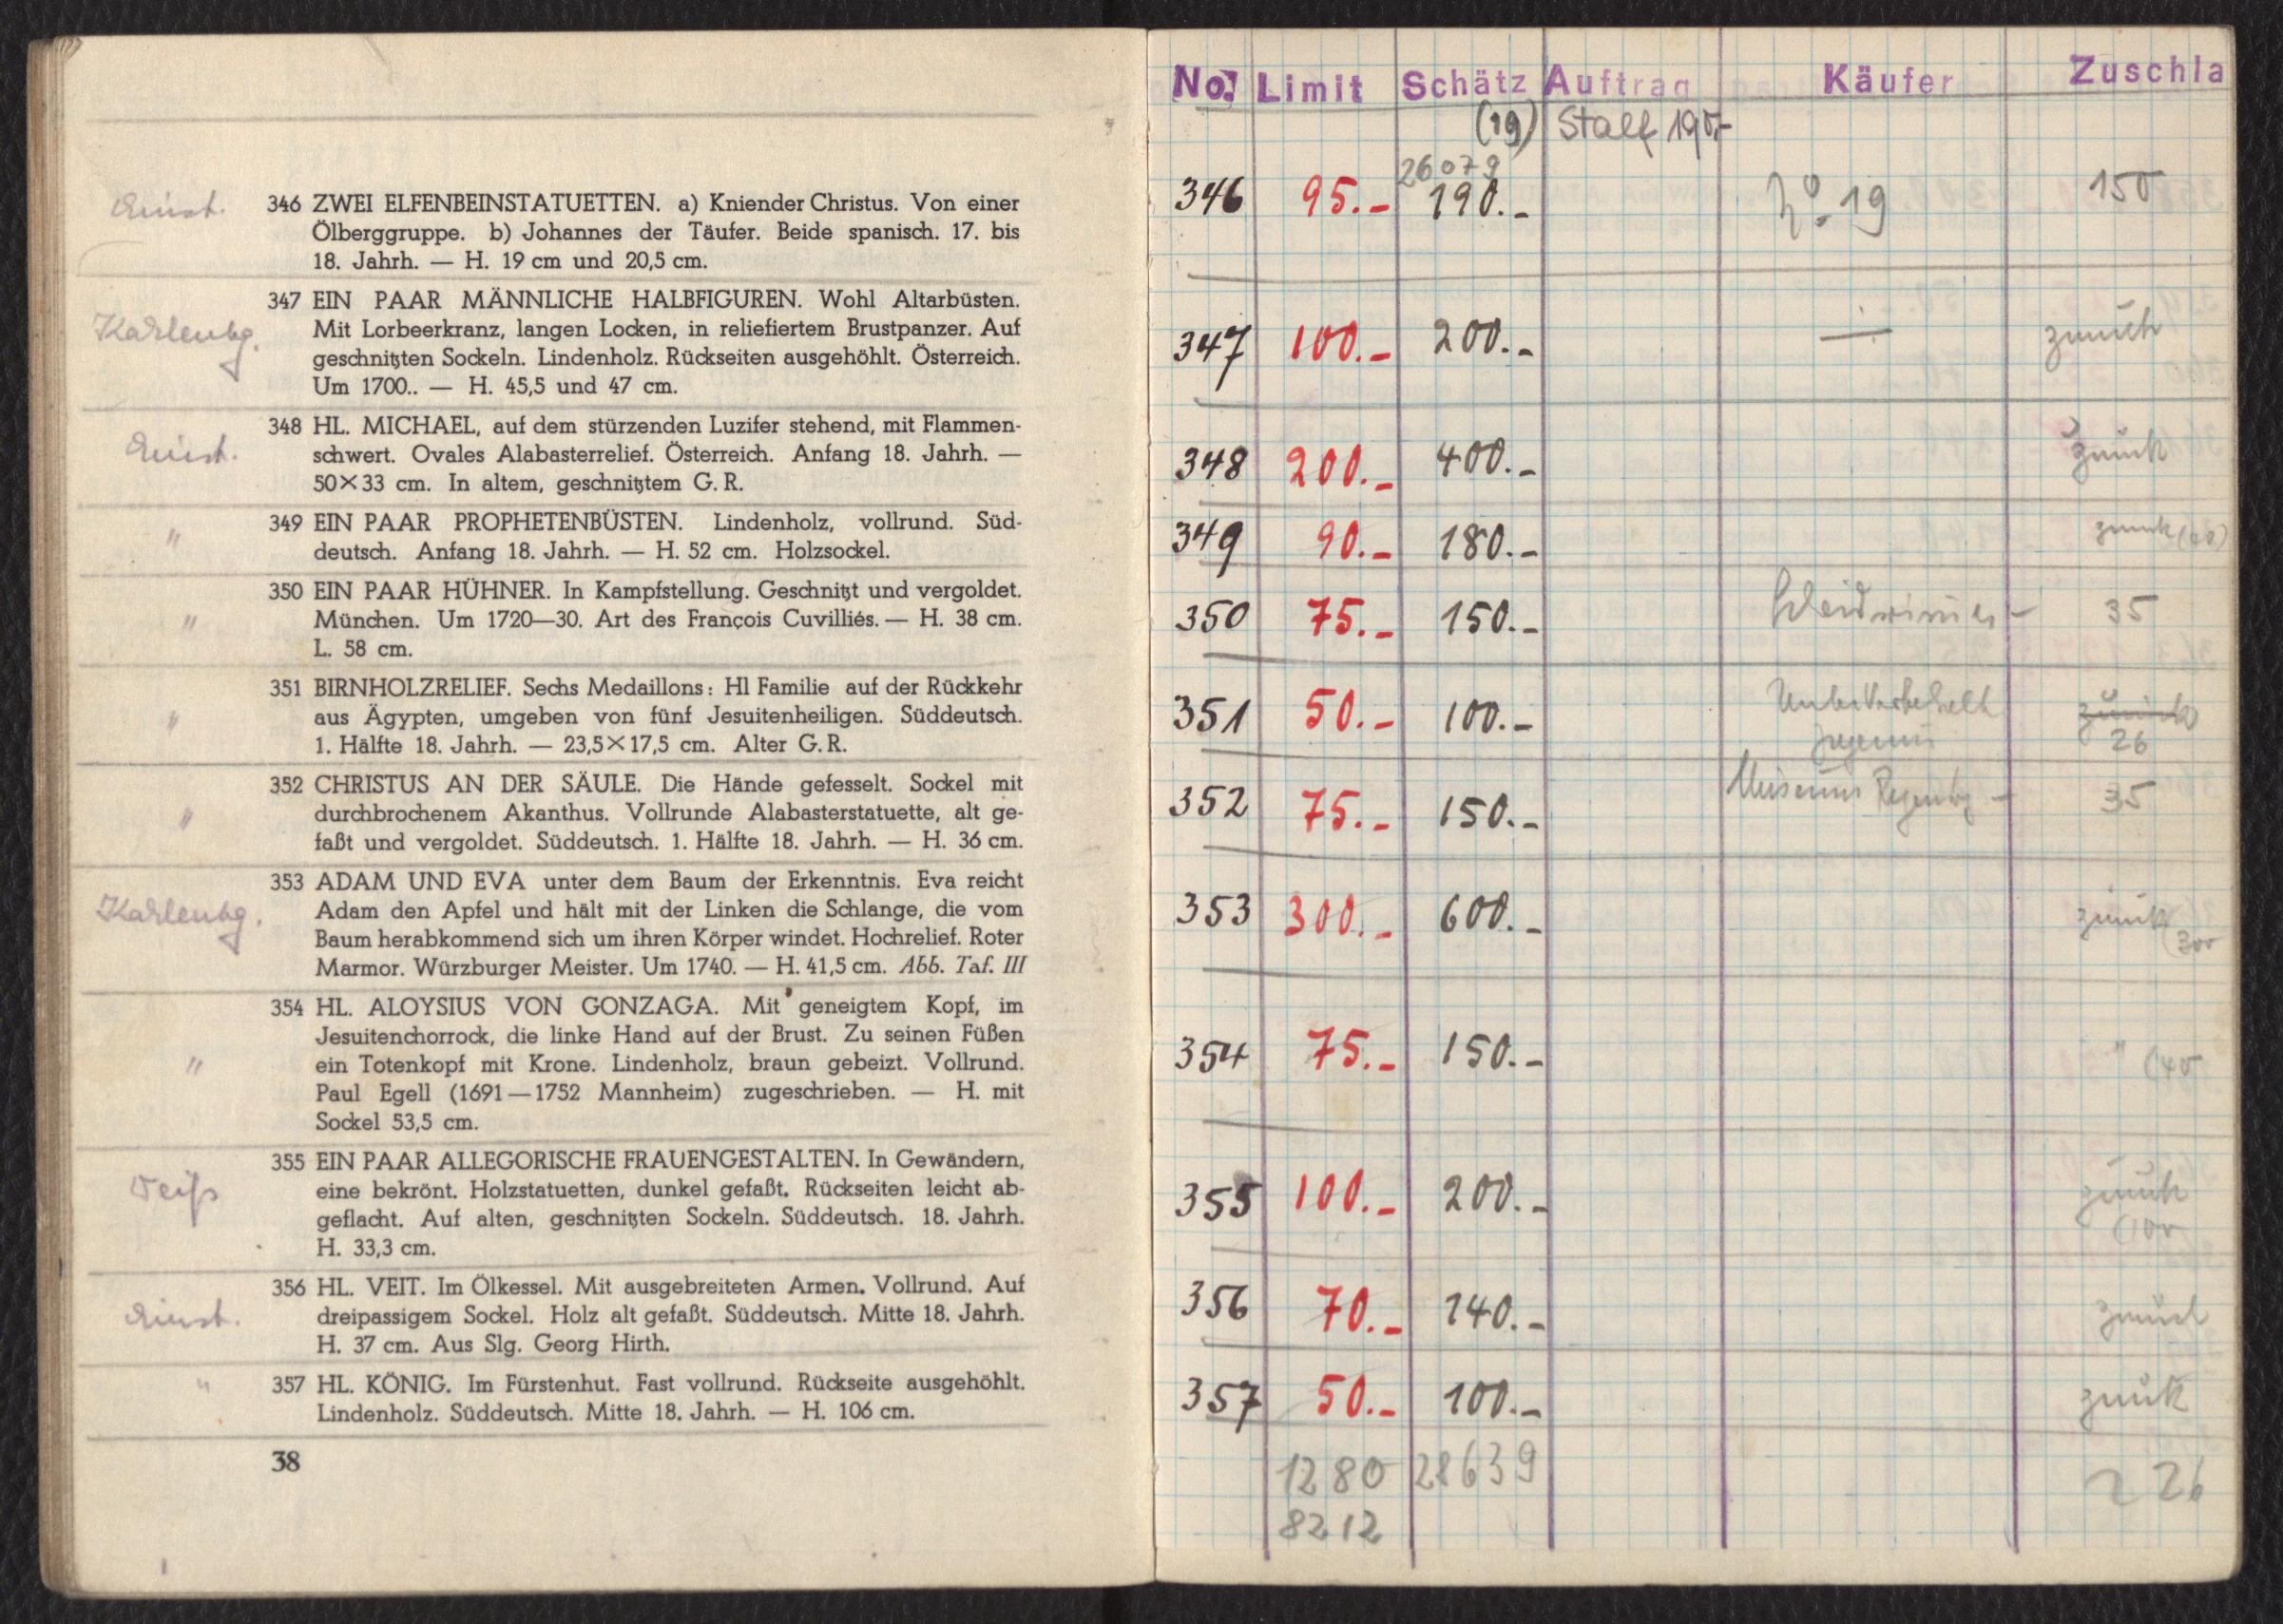 346 ZWEI ELFENBEINSTATUETTEN. a) Kniender Christus. Von einer
Ölberggruppe. b) Johannes der Täufer. Beide spanisch. 17. bis
18. Jahrh. — H. 19 cm und 20,5 cm.
Karlenbg.
347 EIN PAAR MÄNNLICHE HALBFIGUREN. Wohl Altarbüsten.
Mit Lorbeerkranz, langen Locken, in reliefiertem Brustpanzer. Auf
geschnitzten Sockeln. Lindenholz. Rückseiten ausgehöhlt. Österreich.
Um 1700.. — H. 45,5 und 47 cm.
348 HL. MICHAEL, auf dem stürzenden Luzifer stehend, mit Flammen-
schwert. Ovales Alabasterrelief. Österreich. Anfang 18. Jahrh. —
50×33 cm. In altem, geschnitztem G. R.
" 349 EIN PAAR PROPHETENBÜSTEN. Lindenholz, vollrund. Süd-
deutsch. Anfang 18. Jahrh. — H. 52 cm. Holzsockel.
" 350 EIN PAAR HÜHNER. In Kampfstellung. Geschnitzt und vergoldet.
München. Um 1720—30. Art des François Cuvilliés. — H. 38 cm.
L. 58 cm.
" 351 BIRNHOLZRELIEF. Sechs Medaillons: Hl Familie auf der Rückkehr
aus Ägypten, umgeben von fünf Jesuitenheiligen. Süddeutsch.
1. Hälfte 18. Jahrh. — 23,5×17,5 cm. Alter G. R.
" 352 CHRISTUS AN DER SÄULE. Die Hände gefesselt. Sockel mit
durchbrochenem Akanthus. Vollrunde Alabasterstatuette, alt ge-
faßt und vergoldet. Süddeutsch. 1. Hälfte 18. Jahrh. — H. 36 cm.
Karlenbg.
353 ADAM UND EVA unter dem Baum der Erkenntnis. Eva reicht
Adam den Apfel und hält mit der Linken die Schlange, die vom
Baum herabkommend sich um ihren Körper windet. Hochrelief. Roter
Marmor. Würzburger Meister. Um 1740. — H. 41,5 cm. Abb. Taf. III
" 354 HL. ALOYSIUS VON GONZAGA. Mit geneigtem Kopf, im
Jesuitenchorrock, die linke Hand auf der Brust. Zu seinen Füßen
ein Totenkopf mit Krone. Lindenholz, braun gebeizt. Vollrund.
Paul Egell (1691—1752 Mannheim) zugeschrieben. — H. mit
Sockel 53,5 cm.
355 EIN PAAR ALLEGORISCHE FRAUENGESTALTEN. In Gewändern,
eine bekrönt. Holzstatuetten, dunkel gefaßt. Rückseiten leicht ab-
geflacht. Auf alten, geschnitzten Sockeln. Süddeutsch. 18. Jahrh.
H. 33,3 cm.
356 HL. VEIT. Im Ölkessel. Mit ausgebreiteten Armen. Vollrund. Auf
dreipassigem Sockel. Holz alt gefaßt. Süddeutsch. Mitte 18. Jahrh.
H. 37 cm. Aus Slg. Georg Hirth.
" 357 HL. KÖNIG. Im Fürstenhut. Fast vollrund. Rückseite ausgehöhlt.
Lindenholz. Süddeutsch. Mitte 18. Jahrh. — H. 106 cm.
38
No. Limit Schätz Auftrag Käufer Zuschla
(19)
26079
346 95.- 190.- No. 19 150
347 100.- 200.- — zurück
348 200.- 400.- zurück
349 90.- 180.- zurück
350 75.- 150.- 35
351 50.- 100.- zurück
26
352 75.- 150.- Museum Regensbg - 35
353 300.- 600.- zurück
(300
354 75.- 150.- " (40
355 100.- 200.- zurück
(100
356 70.- 140.- zurück
357 50.- 100.- zurück
1280 28639
8212